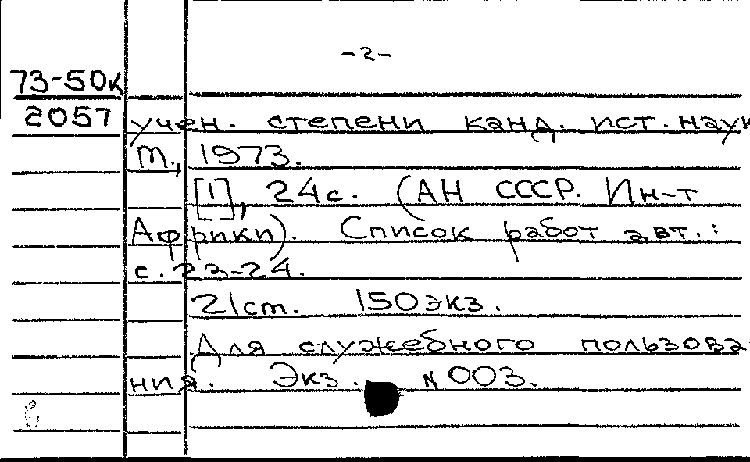 -2-
73-50к
2057 учен. степени канд. ист. наук
М., 1973.
[1], 24с. (АН СССР. Ин-т
Африки). Список работ авт.:
с. 23-24.
21ст. 150экз.
Для служебного пользова-
ния. Экз. N 003.